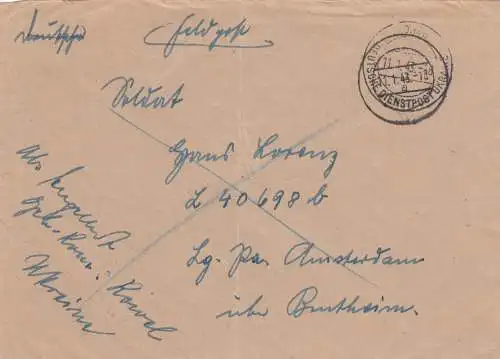 Deutsche Feldpost
DEUTSCHE DIENSTPOST UKRAINE
Soldat
Hans Lorenz
L 40698 b
Lg. Pa. Amsterdam
über Bentheim.
Abs.
Kowel
Ukraine